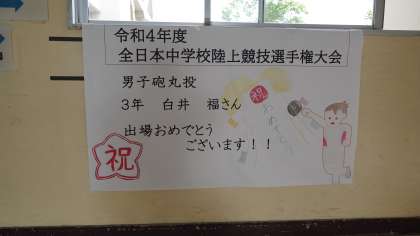 令和4年度
全日本中学校陸上競技選手権大会
男子砲丸投
3年 白井 福さん
出場おめでとう
ございます！！
祝
祝